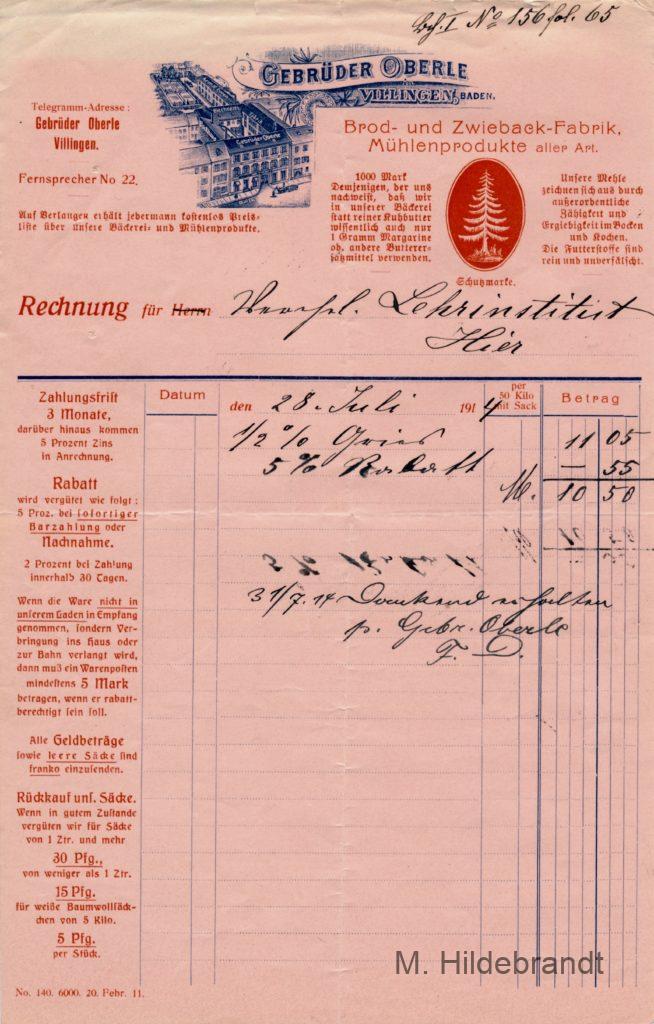 No 156 fol. 65
GEBRÜDER OBERLE
in
VILLINGEN, BADEN.
Gebrüder Oberle
Telegramm-Adresse:
Gebrüder Oberle
Villingen.
Fernsprecher No 22.
Auf Verlangen erhält jedermann kostenlos Preis-
liste über unsere Bäckerei- und Mühlenprodukte.
Brod- und Zwieback-Fabrik,
Mühlenprodukte aller Art.
1000 Mark
Demjenigen, der uns
nachweist, daß wir
in unserer Bäckerei
statt reiner Kuhbutter
wissentlich auch nur
1 Gramm Margarine
od. andere Butterer-
satzmittel verwenden.
Schutzmarke.
Unsere Mehle
zeichnen sich aus durch
außerordentliche
Zähigkeit und
Ergiebigkeit im Backen
und Kochen.
Die Futterstoffe sind
rein und unverfälscht.
Rechnung für Herrn Lehrinstitut
Hier
Datum
den 28. Juli 1914
per
50 Kilo
mit Sack
Betrag
1/2 % Gries 11 05
5 % Rabatt — 55
M. 10 50
31/7. 14 Dankend erhalten
p. Gebr. Oberle
F. D.
Zahlungsfrist
3 Monate,
darüber hinaus kommen
5 Prozent Zins
in Anrechnung.
Rabatt
wird vergütet wie folgt:
5 Proz. bei sofortiger
Barzahlung oder
Nachnahme.
2 Prozent bei Zahlung
innerhalb 30 Tagen.
Wenn die Ware nicht in
unserem Laden in Empfang
genommen, sondern Ver-
bringung ins Haus oder
zur Bahn verlangt wird,
dann muß ein Warenposten
mindestens 5 Mark
betragen, wenn er rabatt-
berechtigt sein soll.
Alle Geldbeträge
sowie leere Säcke sind
franko einzusenden.
Rückkauf uns. Säcke.
Wenn in gutem Zustande
vergüten wir für Säcke
von 1 Ztr. und mehr
30 Pfg.,
von weniger als 1 Ztr.
15 Pfg.
für weiße Baumwollsäck-
chen von 5 Kilo.
5 Pfg.
per Stück.
No. 140. 6000. 20. Febr. 11.
M. Hildebrandt